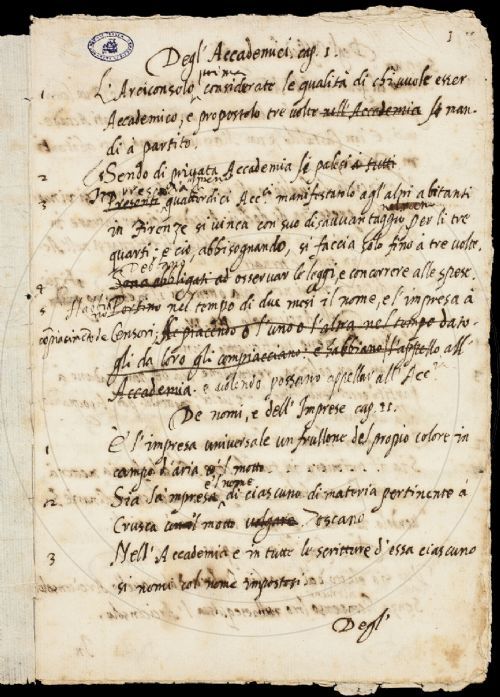 1
Degl' Accademici. cap. 1.
prima
1 L'Arciconsolo considerate le qualità di chi vuole esser
Accademico, e propostolo tre volte nell'Accademia si man-
di à partito.
2 Essendo di privata Accademia si palesi à tutti
3 Presenti quattordici Acc.ci manifestarlo agl'altri abitanti
nel meno
in Firenze si vinca con suo disavvantaggio per li tre
quarti; e ciò, abbisognando, si faccia solo fino a tre volte.
Debbasi
4 Sono obbligati ad osservar le leggi, e concorrere alle spese.
5 Portino nel tempo di due mesi il nome, e l'impresa à
Censori, se piacendo o l'uno o l'altra nel tempo dato-
gli da loro gli compiacciano: e s'abbiano l'appello all'
Accademia. e volendo possano appellar all'Acc.a
De nomi, e dell'Imprese cap. II.
1 È l'impresa universale un frullone del propio colore in
campo d'aria e'l motto
e'l nome
2 Sia la impresa di ciascuno di materia pertinente à
Crusca con il motto volgare Toscano
3 Nell'Accademia e in tutte le scritture d'essa ciascuno
si nomi col nome impostosi
Degl'